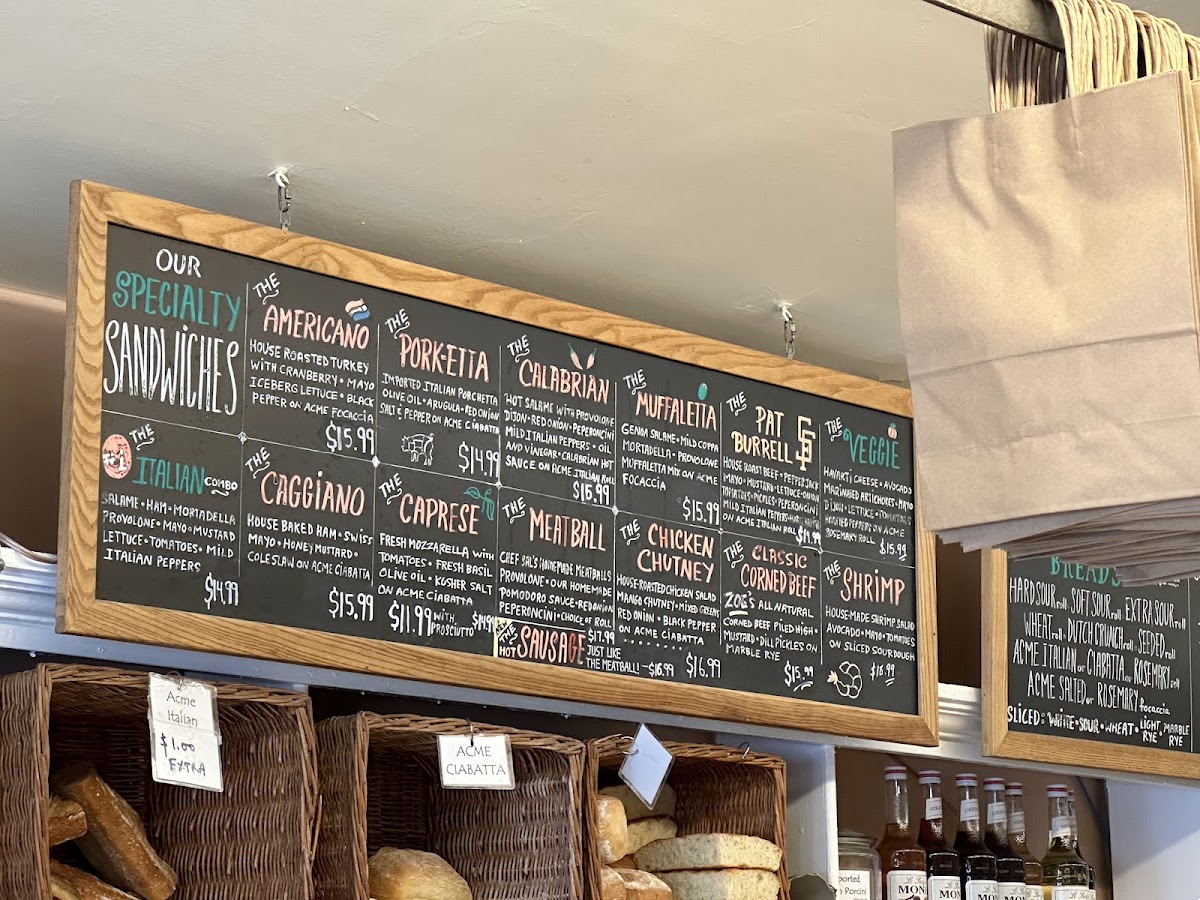 OUR
SPECIALTY
SANDWICHES
THE
AMERICANO
HOUSE ROASTED TURKEY
WITH CRANBERRY • MAYO
ICEBERG LETTUCE • BLACK
PEPPER ON ACME FOCACCIA
$15.99
THE
PORK-ETTA
IMPORTED ITALIAN PORCHETTA
OLIVE OIL • ARUGULA • RED ONION
SALT & PEPPER ON ACME CIABATTA
$14.99
THE
CALABRIAN
HOT SALAME WITH PROVOLONE
DIJON • RED ONION • PEPERONCINI
MILD ITALIAN PEPPERS • OIL
AND VINEGAR • CALABRIAN HOT
SAUCE ON ACME ITALIAN ROLL
$15.99
THE
MUFFALETTA
GENOA SALAME • MILD COPPA
MORTADELLA • PROVOLONE
MUFFALETTA MIX ON ACME
FOCACCIA
$15.99
THE
PAT
BURRELL
SF
HOUSE ROAST BEEF • PEPPER JACK
MAYO • MUSTARD • LETTUCE • ONION
TOMATOES • PICKLES • PEPERONCINI
MILD ITALIAN PEPPERS
ON ACME ITALIAN ROLL
THE
VEGGIE
HAVARTI CHEESE • AVOCADO
MARINATED ARTICHOKES • MAYO
LETTUCE • TOMATOES
PEPPERS ON ACME
ROSEMARY ROLL
$15.99
#1
THE
ITALIAN COMBO
SALAME • HAM • MORTADELLA
PROVOLONE • MAYO • MUSTARD
LETTUCE • TOMATOES • MILD
ITALIAN PEPPERS
$14.99
THE
CAGGIANO
HOUSE BAKED HAM • SWISS
MAYO • HONEY MUSTARD •
COLESLAW ON ACME CIABATTA
$15.99
THE
CAPRESE
FRESH MOZZARELLA WITH
TOMATOES • FRESH BASIL
OLIVE OIL • KOSHER SALT
ON ACME CIABATTA
$11.99 WITH
PROSCIUTTO
THE
MEATBALL
CHEF SAL'S HOMEMADE MEATBALLS
PROVOLONE • OUR HOMEMADE
POMODORO SAUCE • RED ONION
PEPERONCINI • CHOICE OF ROLL
$17.99
THE
HOT SAUSAGE JUST LIKE
THE MEATBALL! $16.99
THE
CHICKEN
CHUTNEY
HOUSE-ROASTED CHICKEN SALAD
MANGO CHUTNEY • MIXED GREENS
RED ONION • BLACK PEPPER
ON ACME CIABATTA
$16.99
THE
CLASSIC
CORNED BEEF
ZOE'S ALL NATURAL
CORNED BEEF PILED HIGH •
MUSTARD • DILL PICKLES ON
MARBLE RYE
$15.99
THE
SHRIMP
HOUSE-MADE SHRIMP SALAD
AVOCADO • MAYO • TOMATOES
ON SLICED SOURDOUGH
$18.99
BREADS
HARD SOUR roll SOFT SOUR roll EXTRA SOUR roll
WHEAT roll DUTCH CRUNCH roll SEEDED roll
ACME ITALIAN or CIABATTA or ROSEMARY roll
ACME SALTED or ROSEMARY focaccia
SLICED: WHITE • SOUR • WHEAT • LIGHT RYE • MARBLE RYE
Acme
Italian
$1.00
EXTRA
ACME
CIABATTA
Porcini
MONI
MONI
MONI